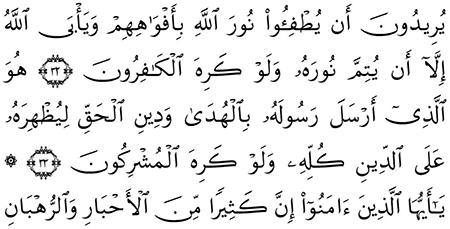 يُرِيدُونَ أَن يُطْفِـُٔوا۟ نُورَ ٱللَّهِ بِأَفْوَٰهِهِمْ وَيَأْبَى ٱللَّهُ
إِلَّآ أَن يُتِمَّ نُورَهُۥ وَلَوْ كَرِهَ ٱلْكَـٰفِرُونَ ٣٢ هُوَ
ٱلَّذِىٓ أَرْسَلَ رَسُولَهُۥ بِٱلْهُدَىٰ وَدِينِ ٱلْحَقِّ لِيُظْهِرَهُۥ
عَلَى ٱلدِّينِ كُلِّهِۦ وَلَوْ كَرِهَ ٱلْمُشْرِكُونَ ٣٣ ۞
يَـٰٓأَيُّهَا ٱلَّذِينَ ءَامَنُوٓا۟ إِنَّ كَثِيرًا مِّنَ ٱلْأَحْبَارِ وَٱلرُّهْبَانِ